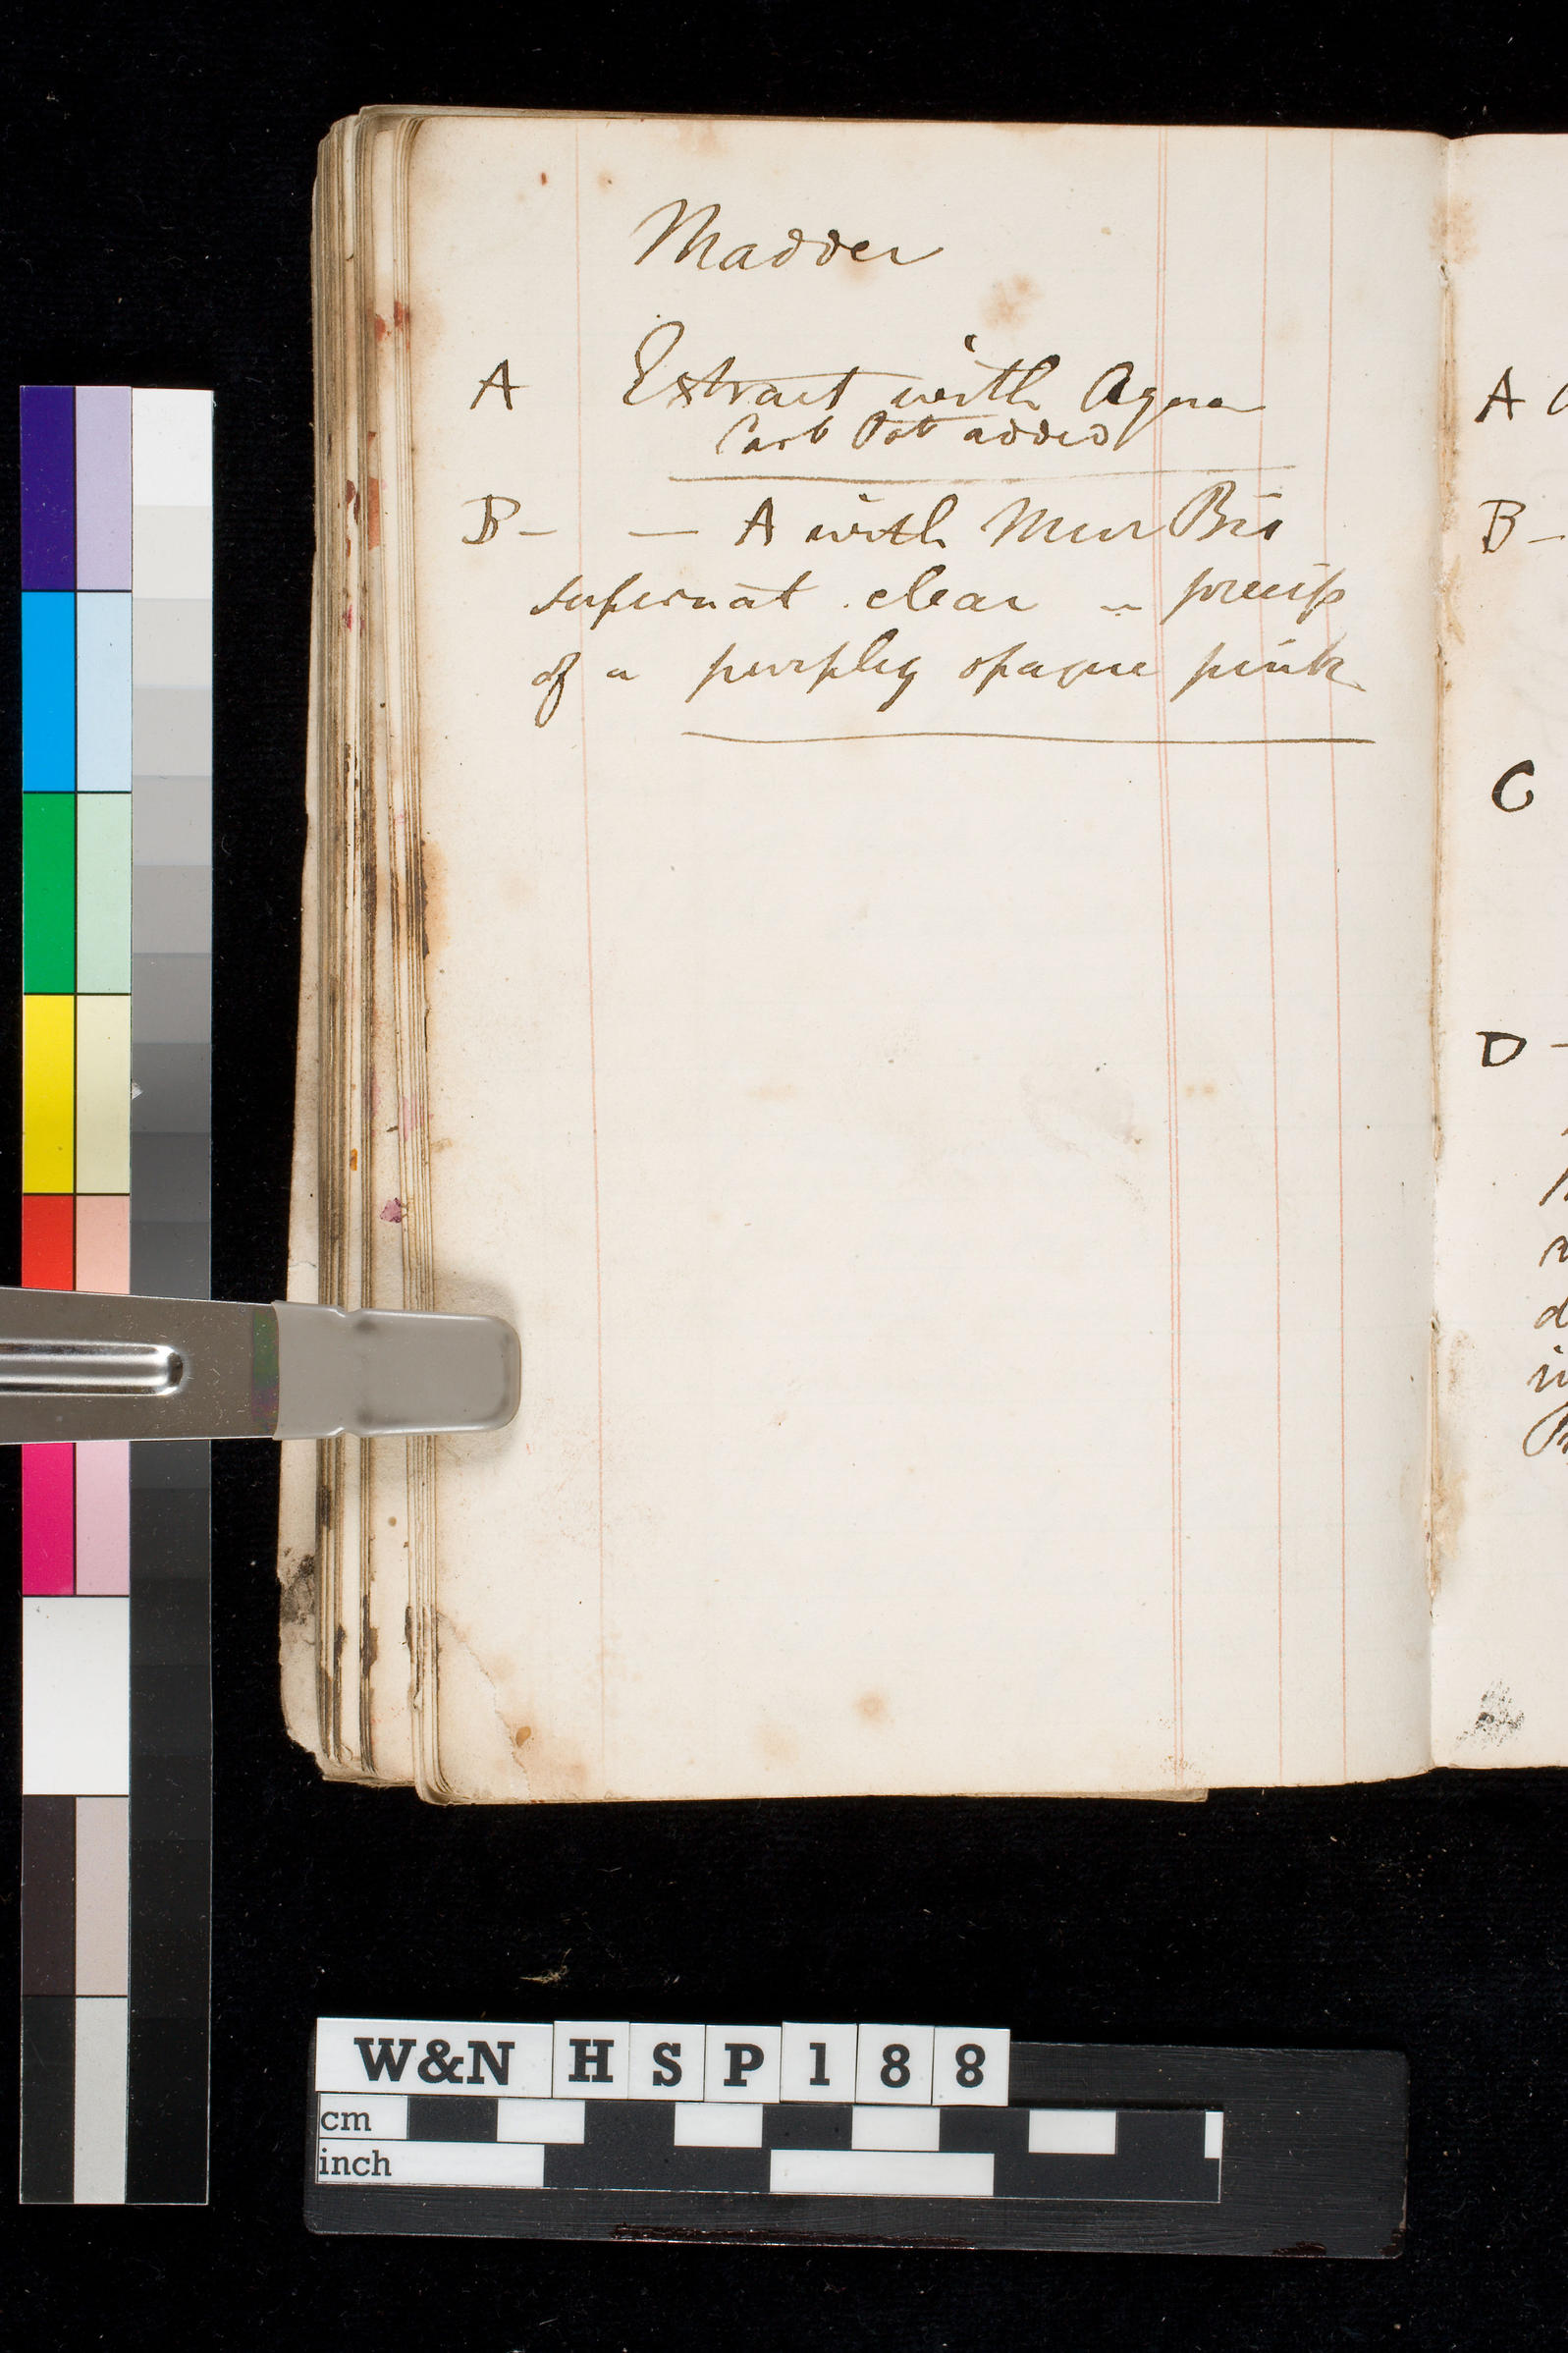 Madder
A Extract with Aqua
Carb Pot added
B - — A with Mur Bis
supernat clear - precip
of a purpley opaque pink
A
B -
C
D -
W&N HSP188
cm
inch